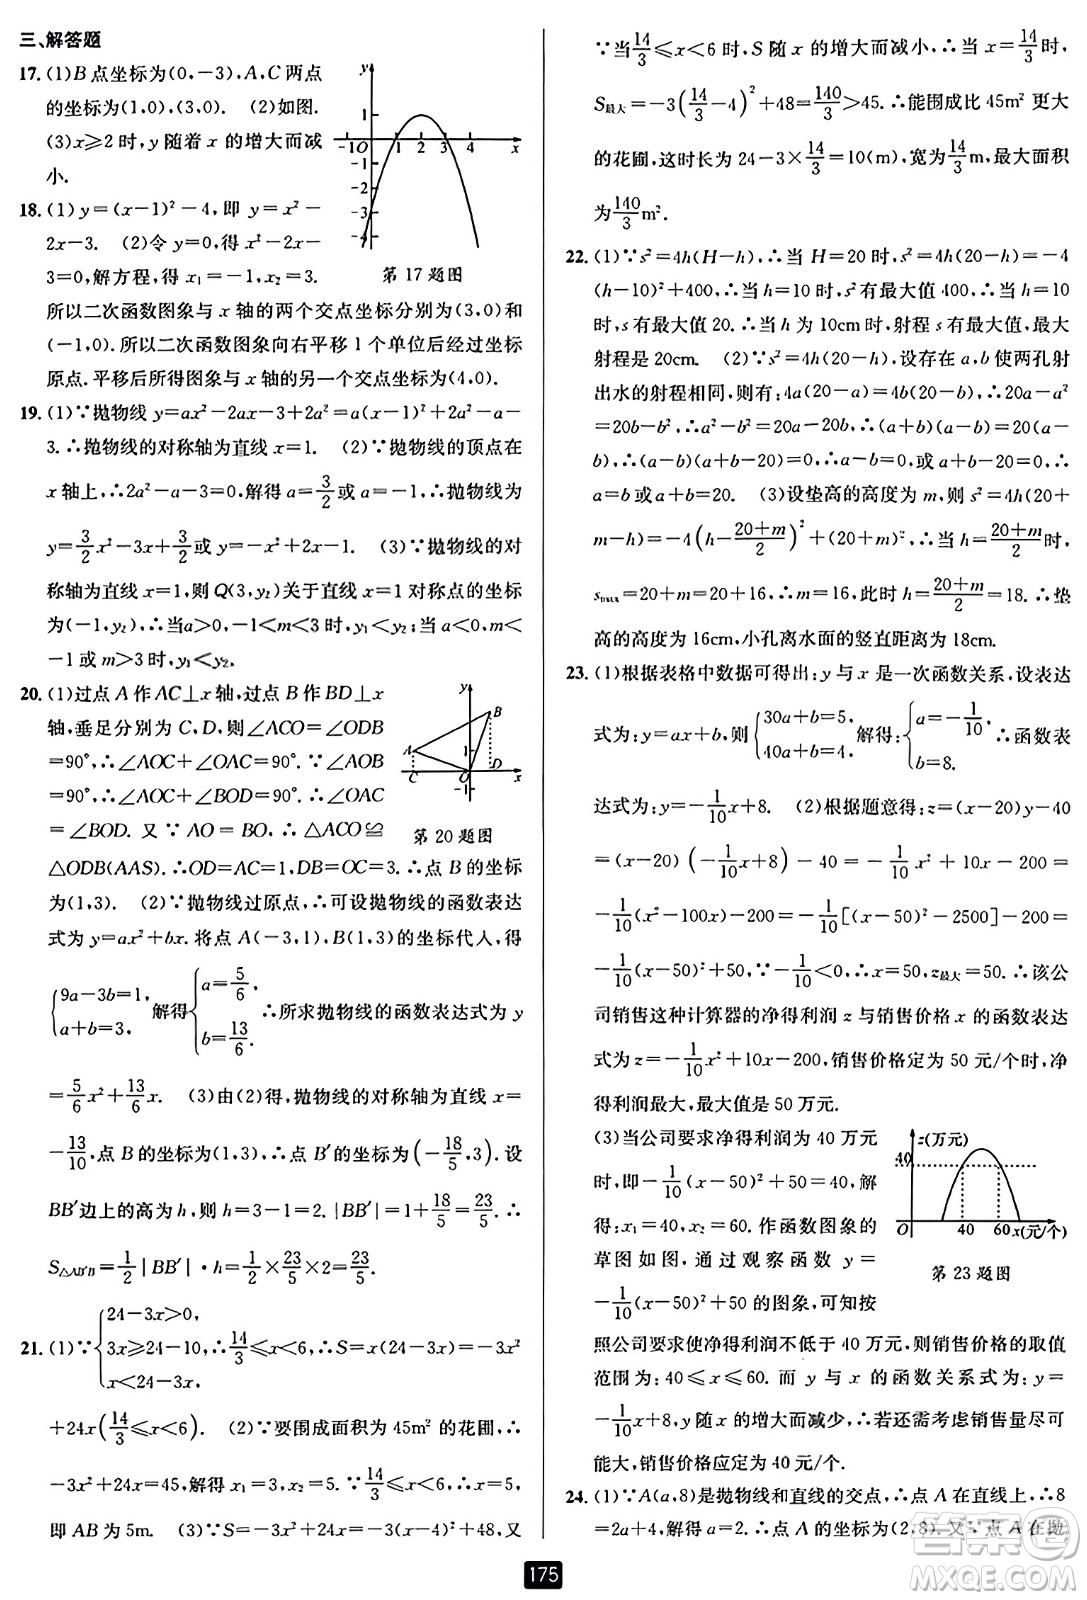 三、解答题
17.(1)B点坐标为(0,-3),A,C两点
的坐标为(1,0),(3,0). (2)如图.
(3)x≥2时,y随着x的增大而减
小.
y
1
-1 O 1 2 3 4 x
-1
-2
-3
-4
第17题图
18.(1)y=(x-1)²-4,即y=x²-
2x-3. (2)令y=0,得x²-2x-
3=0,解方程,得x₁=-1,x₂=3.
所以二次函数图象与x轴的两个交点坐标分别为(3,0)和
(-1,0).所以二次函数图象向右平移1个单位后经过坐标
原点.平移后所得图象与x轴的另一个交点坐标为(4,0).
19.(1)∵抛物线y=ax²-2ax-3+2a²=a(x-1)²+2a²-a-
3.∴抛物线的对称轴为直线x=1. (2)∵抛物线的顶点在
x轴上,∴2a²-a-3=0,解得a=3/2或a=-1,∴抛物线为
y=3/2x²-3x+3/2或y=-x²+2x-1. (3)∵抛物线的对
称轴为直线x=1,则Q(3,y₂)关于直线x=1对称点的坐标
为(-1,y₂),∴当a>0,-1<m<3时,y₁<y₂;当a<0,m<
-1或m>3时,y₁<y₂.
20.(1)过点A作AC⊥x轴,过点B作BD⊥x
轴,垂足分别为C,D,则∠ACO=∠ODB
=90°,∴∠AOC+∠OAC=90°.∵∠AOB
=90°,∴∠AOC+∠BOD=90°.∴∠OAC
=∠BOD.又∵AO=BO,∴△ACO≌
△ODB(AAS).∴OD=AC=1,DB=OC=3.∴点B的坐标
y
B
A
1
C O D x
-1
第20题图
为(1,3). (2)∵抛物线过原点,∴可设抛物线的函数表达
式为y=ax²+bx.将点A(-3,1),B(1,3)的坐标代人,得
{9a-3b=1, a+b=3, 解得{a=5/6, b=13/6. ∴所求抛物线的函数表达式为y
=5/6x²+13/6x. (3)由(2)得,抛物线的对称轴为直线x=
-13/10,点B的坐标为(1,3),∴点B′的坐标为(-18/5,3).设
BB′边上的高为h,则h=3-1=2.|BB′|=1+18/5=23/5.∴
S△AB′B=1/2|BB′|·h=1/2×23/5×2=23/5.
21.(1)∵{24-3x>0, 3x≥24-3x, x<24-3x, ∴14/3≤x<6,∴S=-3x²
+24x(14/3≤x<6). (2)∵要围成面积为45m²的花圃,∴
-3x²+24x=45,解得x₁=3,x₂=5.∵14/3≤x<6,∴x=5,
即AB为5m. (3)∵S=-3x²+24x=-3(x-4)²+48,又
∵当14/3≤x<6时,S随x的增大而减小,∴当x=14/3时,
S最大=-3(14/3-4)²+48=140/3>45.∴能围成比45m²更大
的花圃,这时长为24-3×14/3=10(m),宽为14/3m,最大面积
为140/3m².
22.(1)∵s²=4h(H-h),∴当H=20时,s²=4h(20-h)=-4
(h-10)²+400,∴当h=10时,s²有最大值400,∴当h=10
时,s有最大值20.∴当h为10cm时,射程s有最大值,最大
射程是20cm. (2)∵s²=4h(20-h),设存在a,b使两孔射
出水的射程相同,则有:4a(20-a)=4b(20-b),∴20a-a²
=20b-b²,∴a²-b²=20a-20b,∴(a+b)(a-b)=20(a-
b),∴(a-b)(a+b-20)=0,∴a-b=0或a+b-20=0,∴
a=b或a+b=20. (3)设垫高的高度为m,则s²=4h(20+
m-h)=-4(h-20+m/2)²+(20+m)²,∴当h=20+m/2时,
smax=20+m=20+16,∴m=16,此时h=20+m/2=18.∴垫
高的高度为16cm,小孔离水面的竖直距离为18cm.
23.(1)根据表格中数据可得出:y与x是一次函数关系,设表达
式为:y=ax+b,则{30a+b=5, 40a+b=4, 解得:{a=-1/10 b=8. ∴函数表
达式为:y=-1/10x+8. (2)根据题意得:z=(x-20)y-40
=(x-20)(-1/10x+8)-40=-1/10x²+10x-200=
-1/10(x²-100x)-200=-1/10[(x-50)²-2500]-200=
-1/10(x-50)²+50,∵-1/10<0,∴x=50,z最大=50.∴该公
司销售这种计算器的净得利润z与销售价格x的函数表达
式为z=-1/10x²+10x-200,销售价格定为50元/个时,净
得利润最大,最大值是50万元.
(3)当公司要求净得利润为40万元
时,即-1/10(x-50)²+50=40,解
得:x₁=40,x₂=60.作函数图象的
草图如图,通过观察函数y=
-1/10(x-50)²+50的图象,可知按
z(万元)
40
O 40 60 x(元/个)
第23题图
照公司要求使净得利润不低于40万元,则销售价格的取值
范围为:40≤x≤60.而y与x的函数关系式为:y=
-1/10x+8,y随x的增大而减少,∴若还需考虑销售量尽可
能大,销售价格应定为40元/个.
24.(1)∵A(a,8)是抛物线和直线的交点,∴点A在直线上,∴8
=2a+4,解得a=2.∴点A的坐标为(2,8).又∵点A在抛
175
答案圈
MXQE.COM